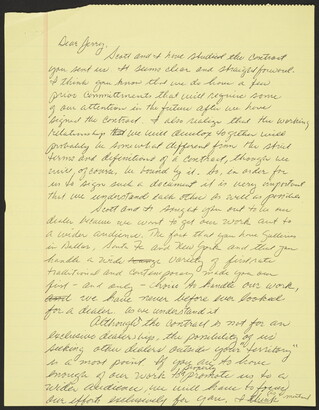 Dear Jerry,
Scott and I have studied the contract
you sent us. It seems clear and straightforward.
I think you know that we do have a few
prior committments that will require some
of our attention in the future after we have
signed the contract. I also realize that the working
relationship we will develop together will
probably be somewhat different from the strict
terms and definitions of a contract, though we
will, of course, be bound by it. So, in order for
us to sign such a document it is very important
that we understand each other as well as possible.
Scott and I sought you out to be our
dealer because we want to get our work out to
a wider audience. The fact that you have Galleries
in Dallas, Santa Fe and New York and that you
handle a wide variety of first rate
traditional and contemporary made you our
first - and only - choice to handle our work,
and we have never before ever looked
for a dealer. As we understand it
Although the contract is not for an
exclusive dealership, the possibility of us
seeking other dealers outside your "territory"
is a moot point. If you are to have
enough of our work to properly promote us to a
wider audience, we will have to focus
our efforts exclusively for you, I think